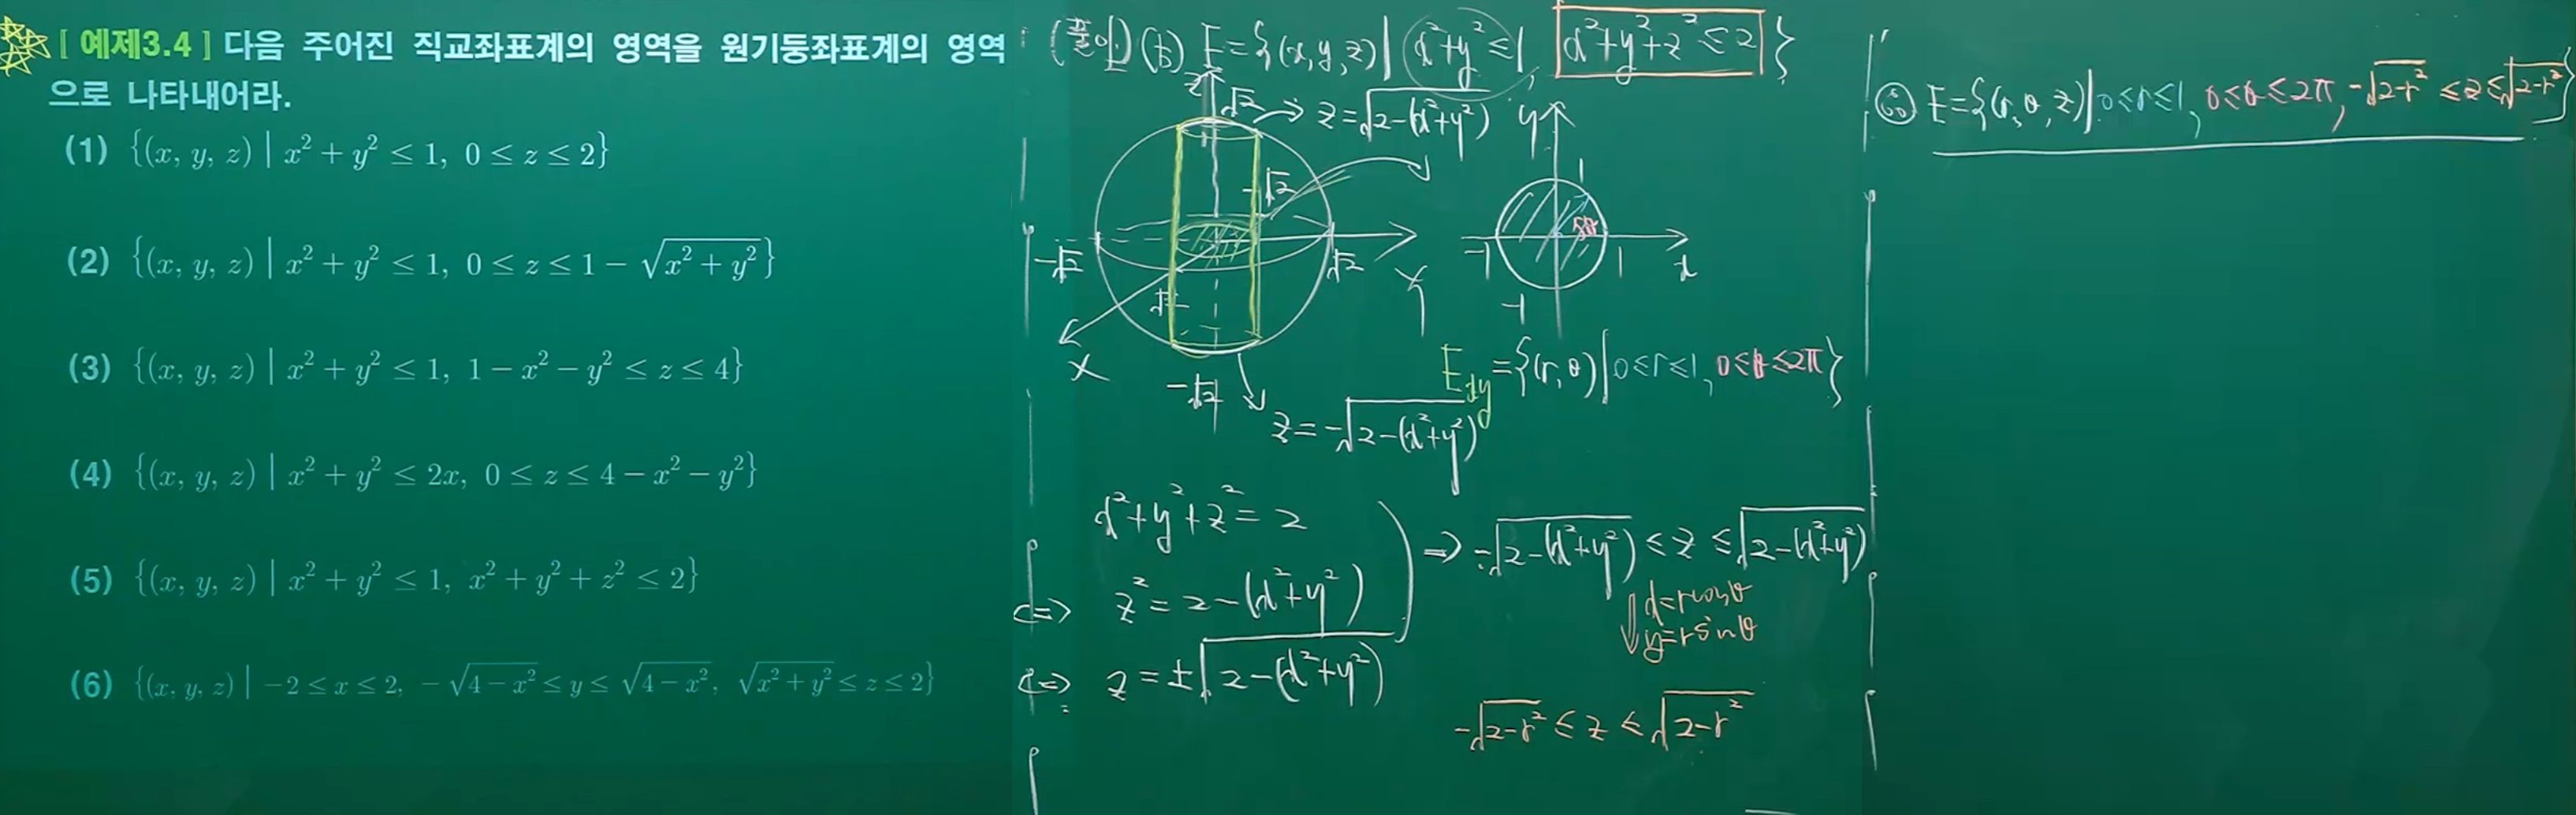 [ 예제3.4 ] 다음 주어진 직교좌표계의 영역을 원기둥좌표계의 영역
으로 나타내어라.
(1) {(x, y, z) | x² + y² ≤ 1, 0 ≤ z ≤ 2}
(2) {(x, y, z) | x² + y² ≤ 1, 0 ≤ z ≤ 1 − √(x² + y²)}
(3) {(x, y, z) | x² + y² ≤ 1, 1 − x² − y² ≤ z ≤ 4}
(4) {(x, y, z) | x² + y² ≤ 2x, 0 ≤ z ≤ 4 − x² − y²}
(5) {(x, y, z) | x² + y² ≤ 1, x² + y² + z² ≤ 2}
(6) {(x, y, z) | −2 ≤ x ≤ 2, −√(4 − x²) ≤ y ≤ √(4 − x²), √(x² + y²) ≤ z ≤ 2}
(풀이) (5) E = {(x, y, z) | x² + y² ≤ 1, x² + y² + z² ≤ 2}
z
√2
z = √(2 − (x² + y²))
−√2
−√2
√2
√2
y
x
−√2
z = −√(2 − (x² + y²))
y
1
−1
1
x
−1
E_xy = {(r, θ) | 0 ≤ r ≤ 1, 0 ≤ θ ≤ 2π}
x² + y² + z² = 2
⇔ z² = 2 − (x² + y²)
⇔ z = ±√(2 − (x² + y²))
⇒ −√(2 − (x² + y²)) ≤ z ≤ √(2 − (x² + y²))
x = r cos θ
y = r sin θ
−√(2 − r²) ≤ z ≤ √(2 − r²)
∴ E = {(r, θ, z) | 0 ≤ r ≤ 1, 0 ≤ θ ≤ 2π, −√(2 − r²) ≤ z ≤ √(2 − r²)}